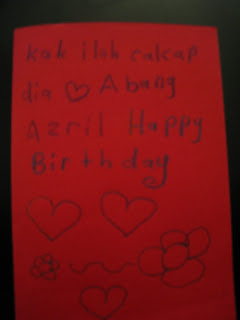 kak iloh cakap
dia ♡ Abang
Azril Happy
Birthday